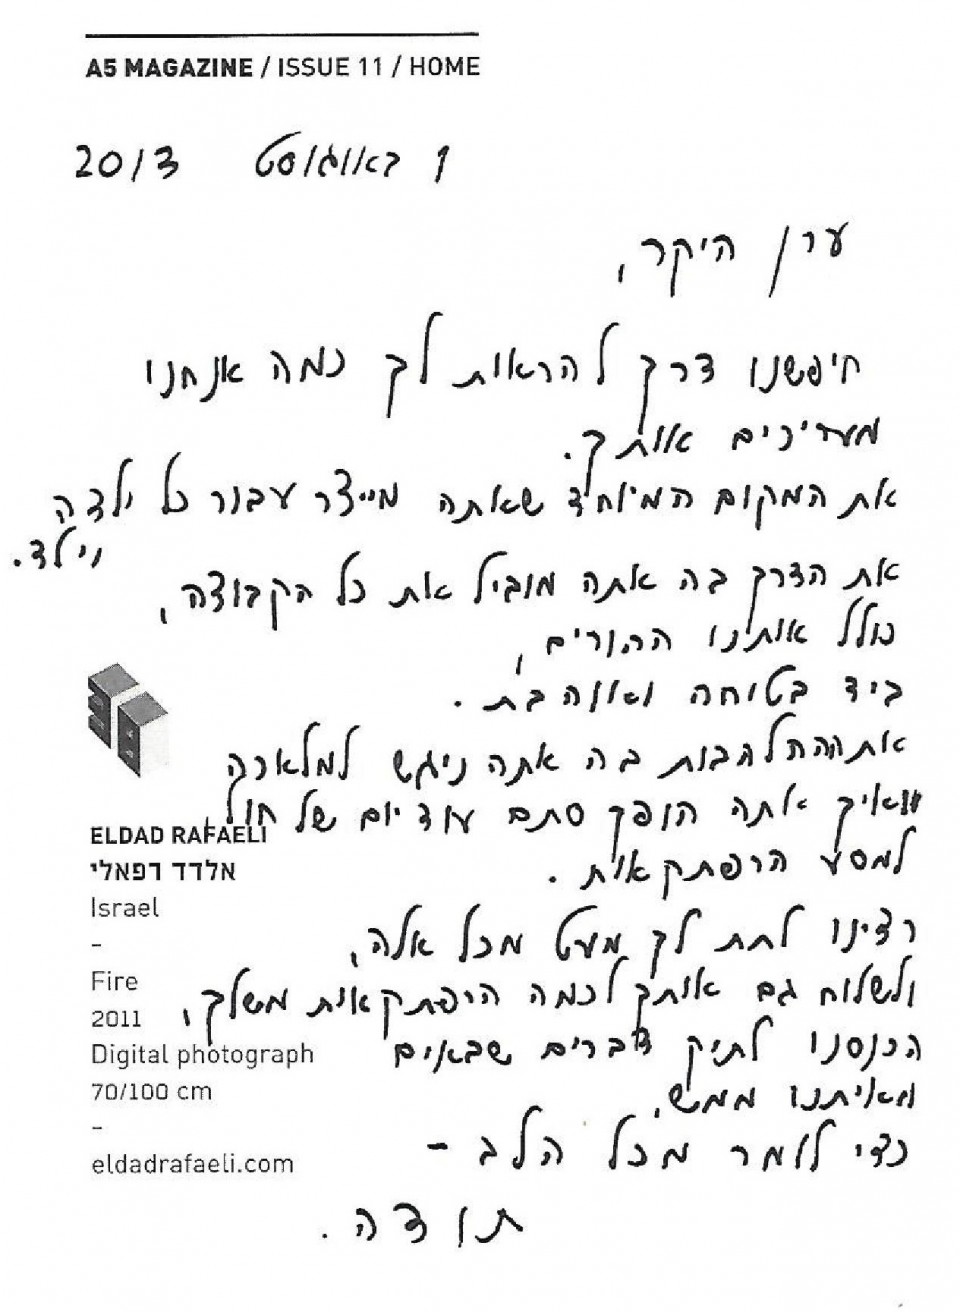 A5 MAGAZINE / ISSUE 11 / HOME
1 באוגוסט 2013
ערן היקר,
חיפשנו דרך להראות לך כמה אנחנו
מעריכים אותך.
את המקום המיוחד שאתה מייצר עבור כל ילדה
וילד.
את הדרך בה אתה מוביל את כל הקבוצה,
כולל אותנו ההורים,
ביד בטוחה ואוהבת.
את ההתלהבות בה אתה ניגש למלאכה
ואיך אתה הופך סתם עוד יום של חול
למסע הרפתקאות.
רצינו לתת לך מעט מכל אלה,
ולשלוח גם אותך לכמה הרפתקאות משלך,
הכנסנו לתיק דברים שבאים
מאיתנו ממש,
כדי לומר מכל הלב -
תודה.
ELDAD RAFAELI
אלדד רפאלי
Israel
-
Fire
2011
Digital photograph
70/100 cm
-
eldadrafaeli.com